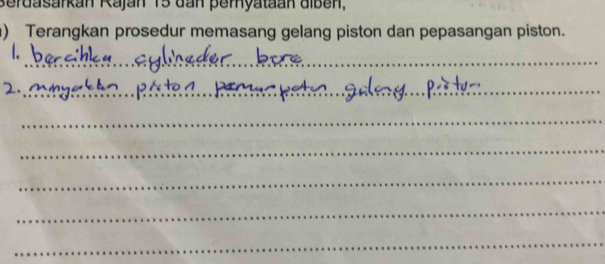 Berdasarkan Rajah 15 dan pernyataan diberi,
) Terangkan prosedur memasang gelang piston dan pepasangan piston.
1. bersihkan cylineder bore
2. piston gelang piston